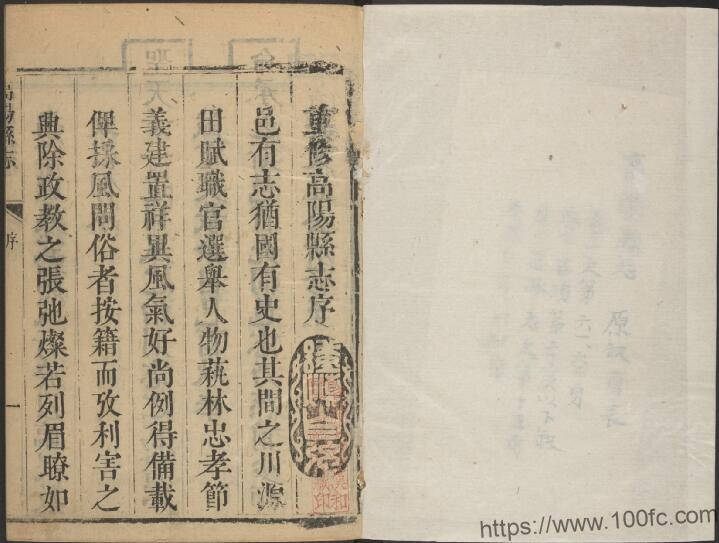 重修高陽縣志序
邑有志猶國有史也其間之川源
田賦職官選舉人物藝林忠孝節
義建置祥異風氣好尚例得備載
俾採風問俗者按籍而攷利害之
興除政教之張弛燦若列眉瞭如
高陽縣志
序
一
https://www.100fc.com